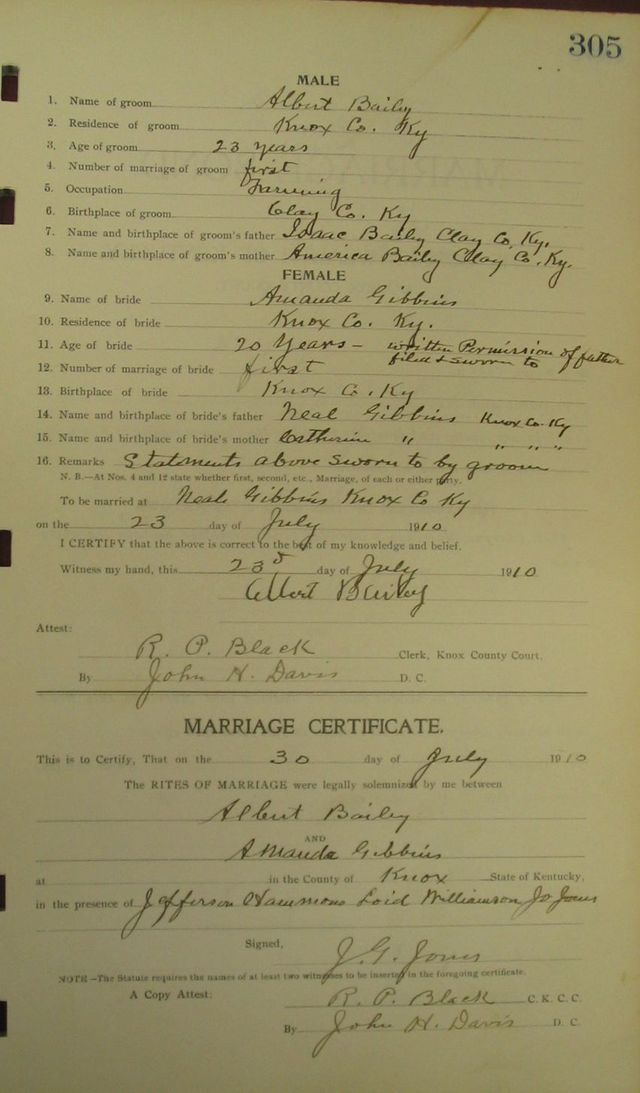 305
MALE
1. Name of groom Albert Baily
2. Residence of groom Knox Co. Ky
3. Age of groom 23 years
4. Number of marriage of groom first
5. Occupation Farming
6. Birthplace of groom Clay Co. Ky
7. Name and birthplace of groom's father Isaac Baily Clay Co. Ky.
8. Name and birthplace of groom's mother America Baily Clay Co. Ky.
FEMALE
9. Name of bride Amanda Gibbins
10. Residence of bride Knox Co. Ky.
11. Age of bride 20 Years – written Permission of father
filed & sworn to
12. Number of marriage of bride first
13. Birthplace of bride Knox Co. Ky
14. Name and birthplace of bride's father Neal Gibbins Knox Co. Ky
15. Name and birthplace of bride's mother Catherine " " " "
16. Remarks Statements above sworn to by groom
N. B.—At Nos. 4 and 12 state whether first, second, etc., Marriage, of each or either party.
To be married at Neal Gibbins Knox Co Ky
on the 23 day of July 1910
I CERTIFY that the above is correct to the best of my knowledge and belief.
Witness my hand, this 23 day of July 1910
Albert Bailey
Attest:
R. P. Black Clerk, Knox County Court.
By John H. Davis D. C.
MARRIAGE CERTIFICATE.
This is to Certify, That on the 30 day of July 1910
The RITES OF MARRIAGE were legally solemnized by me between
Albert Baily
AND
Amanda Gibbins
at in the County of Knox State of Kentucky,
in the presence of Jefferson Hammons Loid Williamson Jo Jones
Signed, J. G. Jones
NOTE—The Statute requires the names of at least two witnesses to be inserted in the foregoing certificate.
A Copy Attest: R. P. Black C. K. C. C.
By John H. Davis D. C.